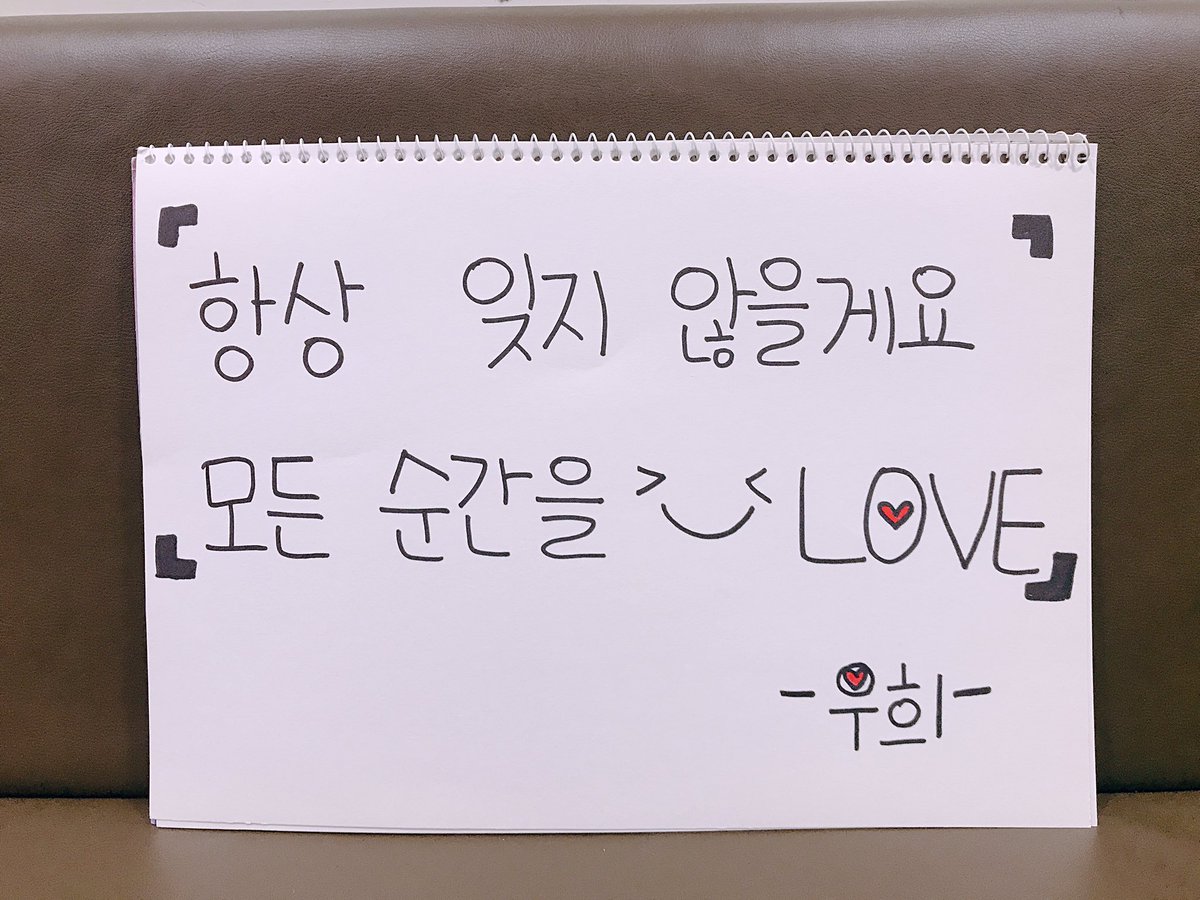 항상 잊지 않을게요
모든 순간을 >‿< LOVE
-우희-